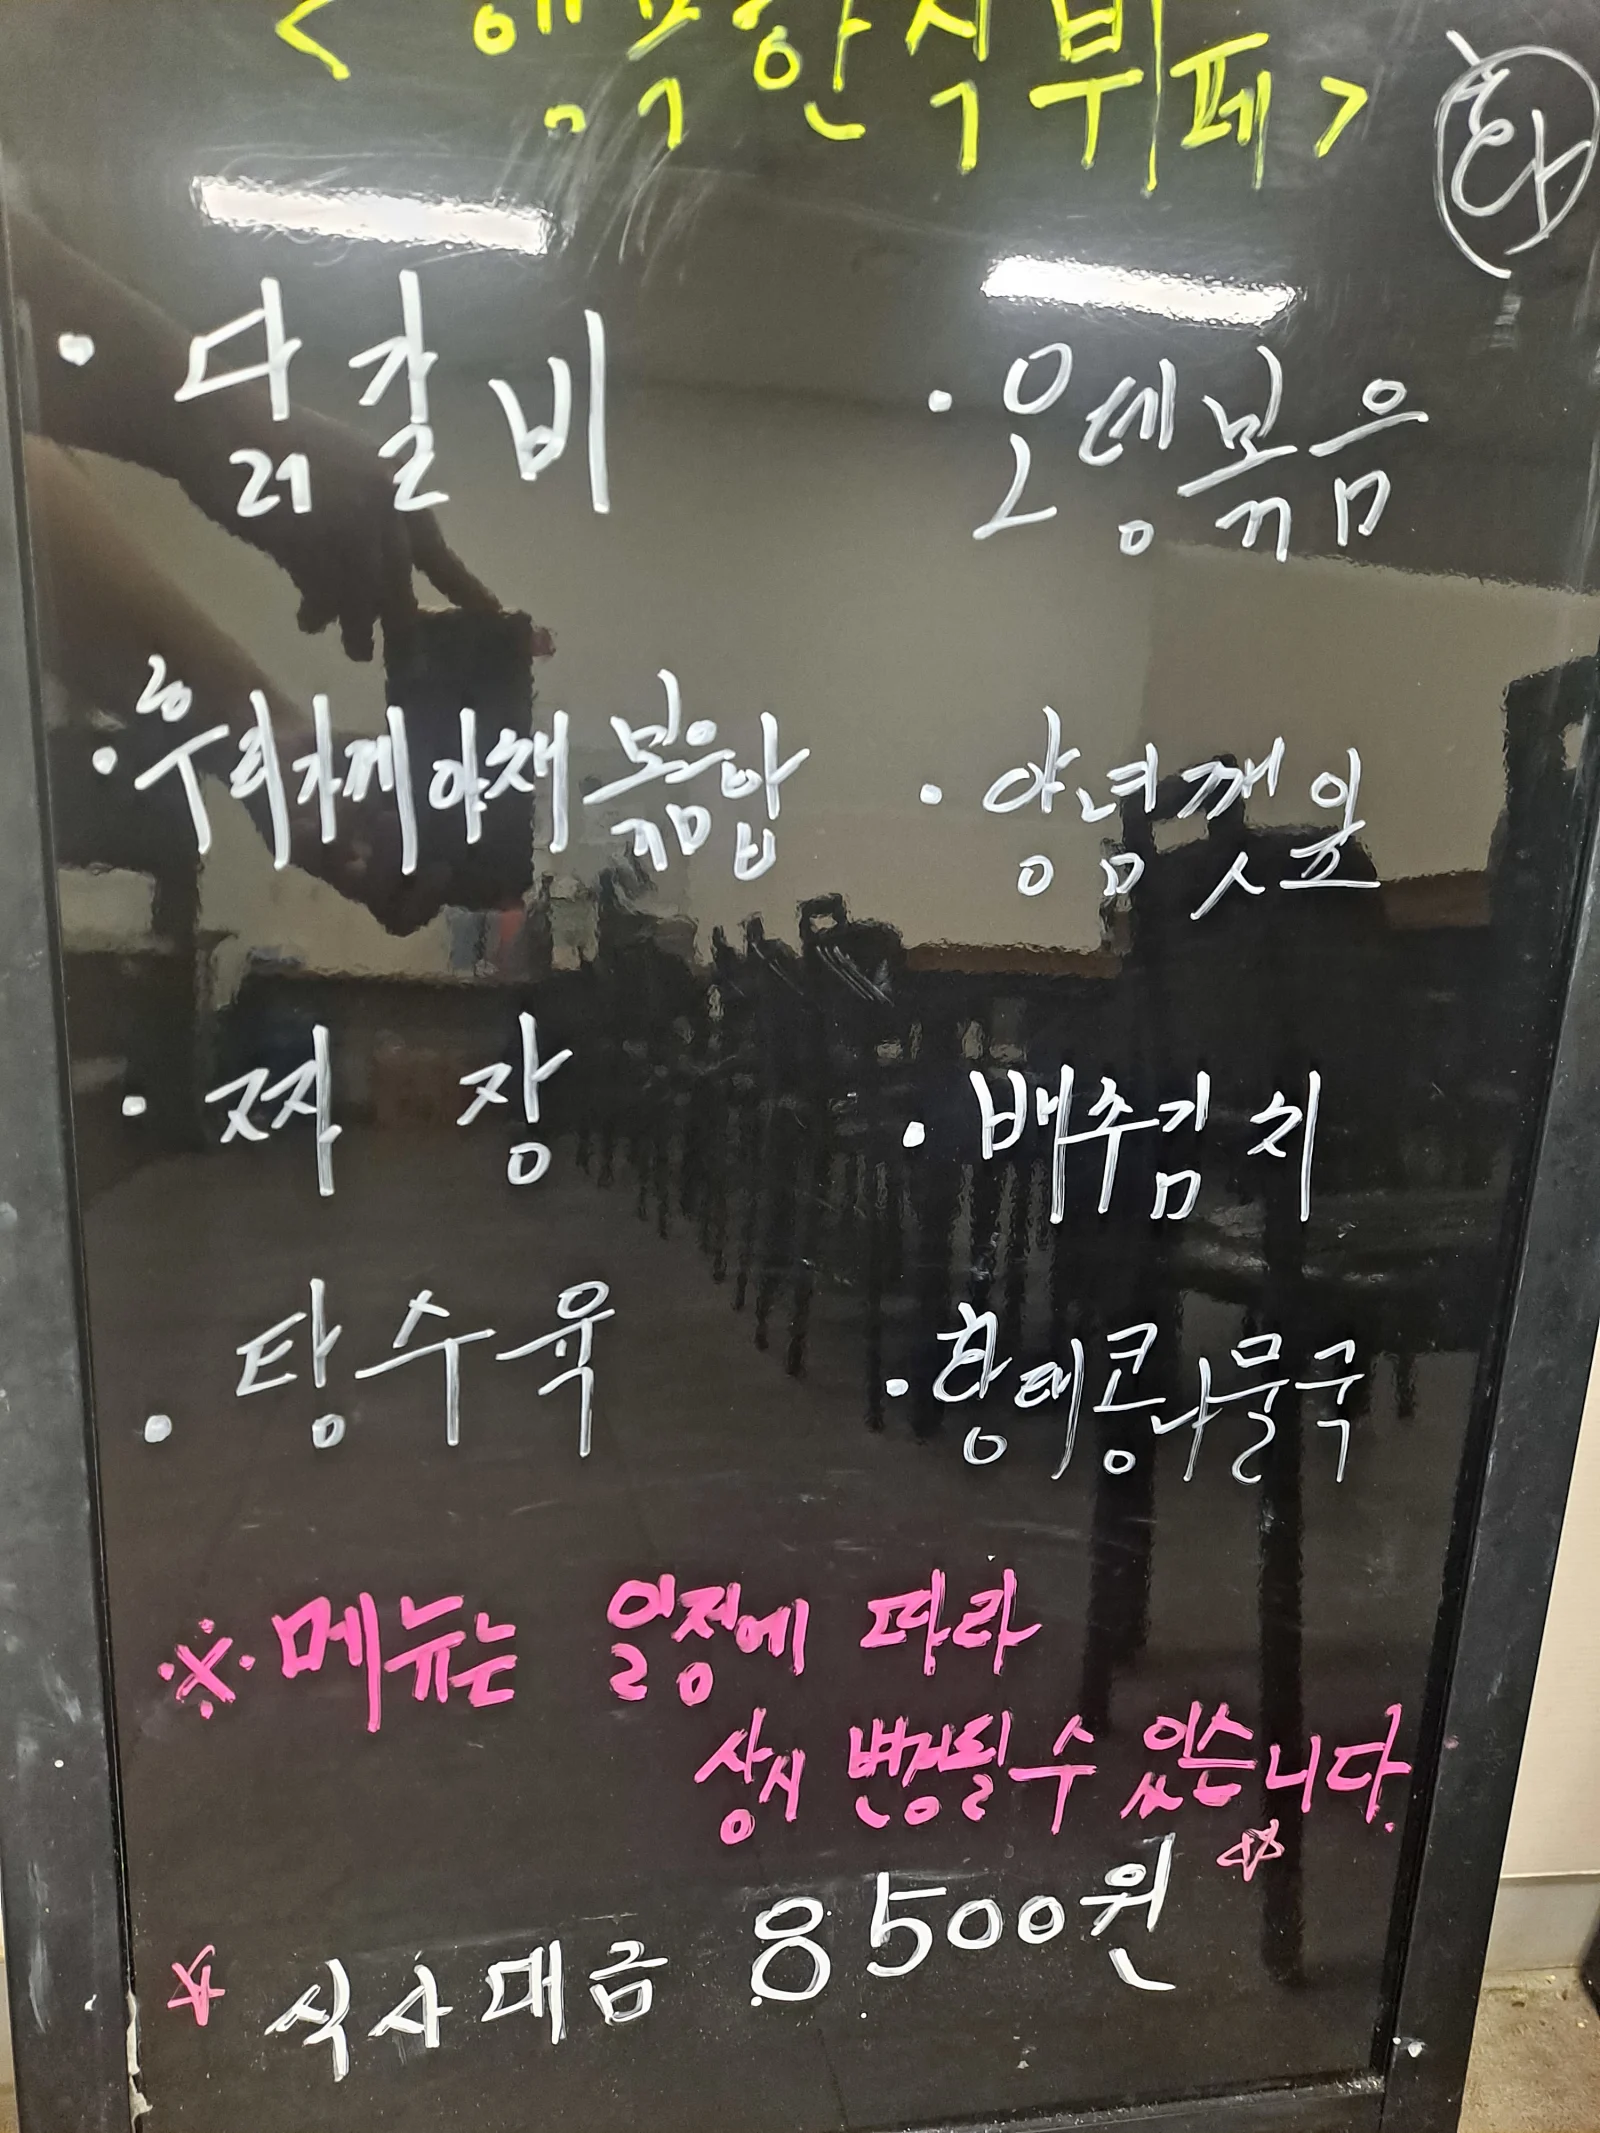 한식뷔페 >
화
· 닭갈비
· 오뎅볶음
· 후리가께야채볶음밥
· 양념깻잎
· 짜장
· 배추김치
· 탕수육
· 황태콩나물국
※ 메뉴는 일정에 따라
상시 변경될 수 있습니다.
☆ 식사대금 8500원 ☆